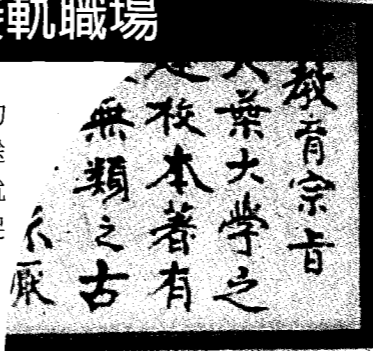 軌職場
教育宗旨
大葉大學之
校本著有
無類之古
厭